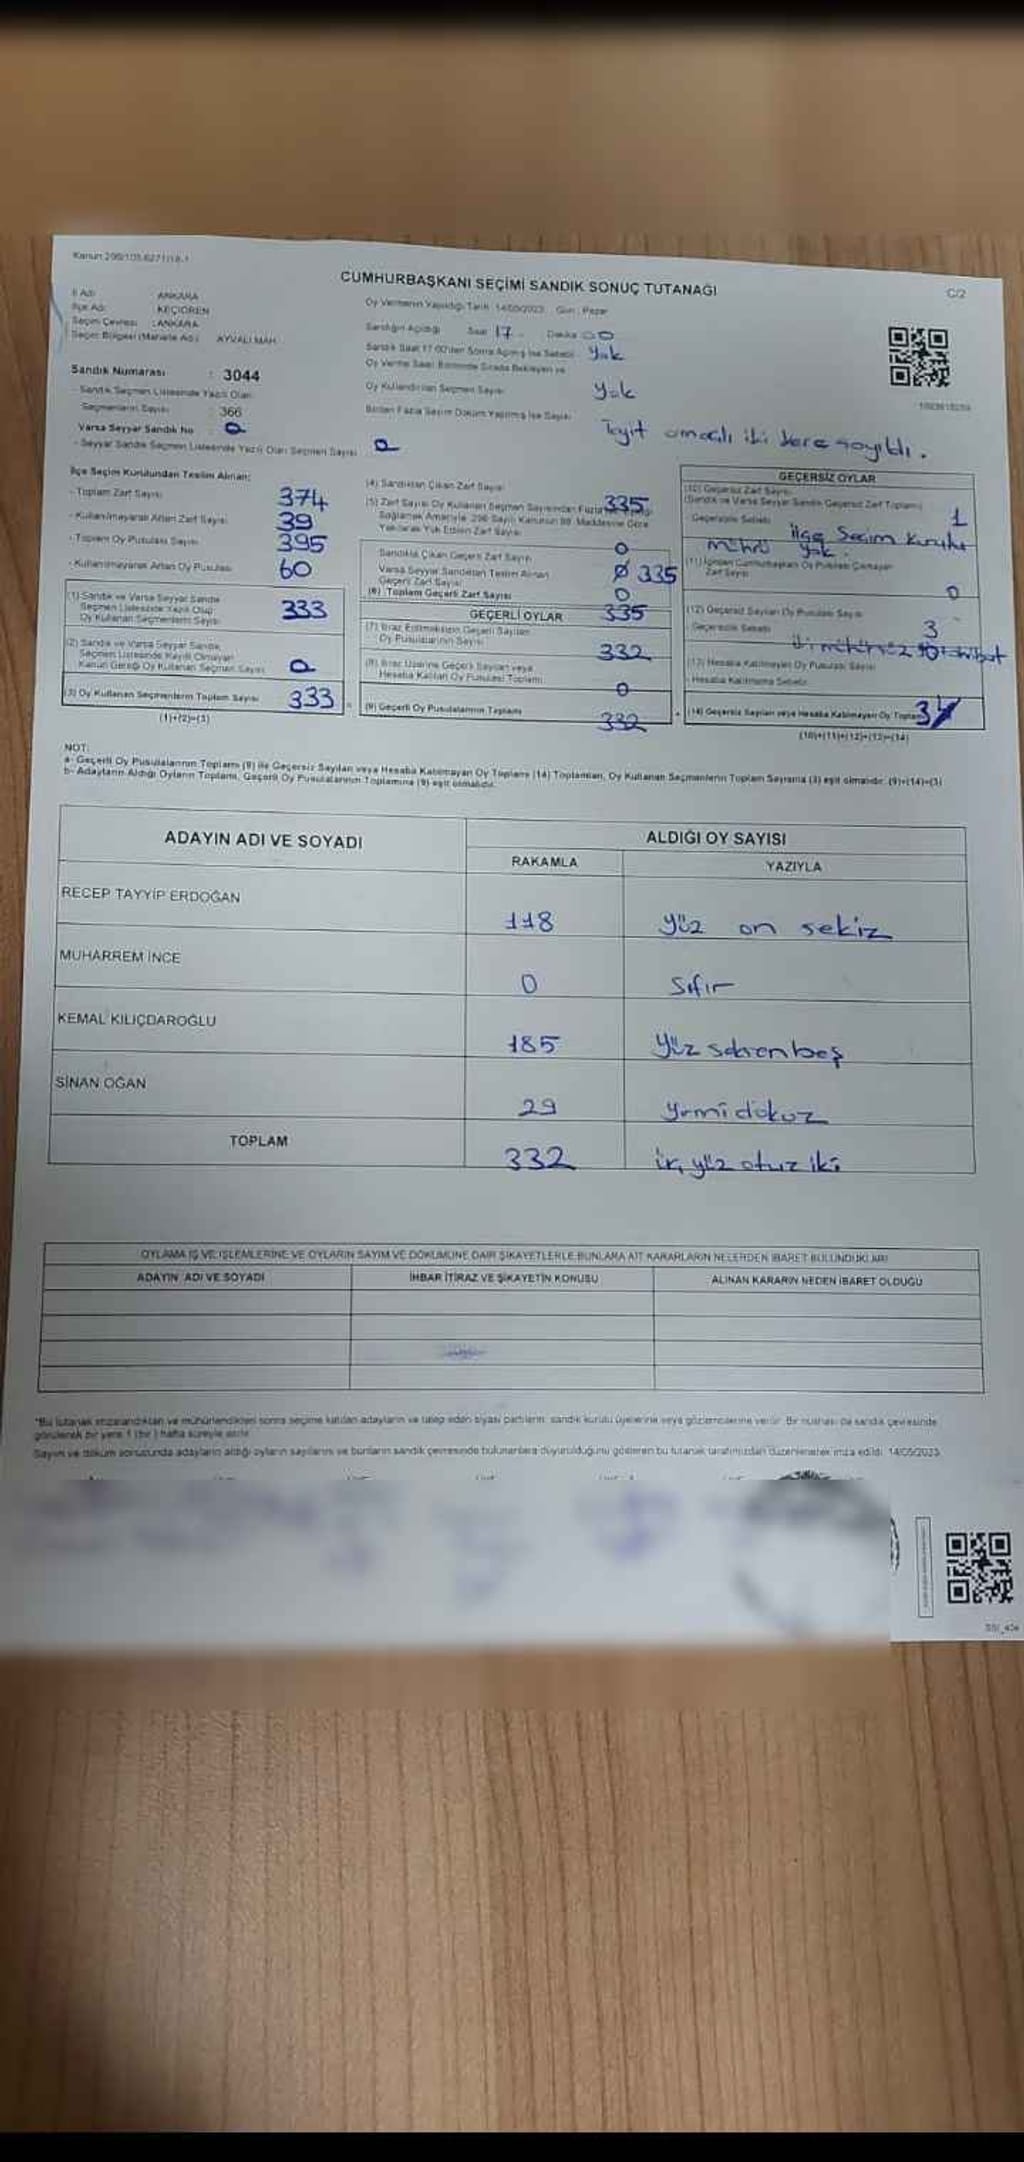 Kanun 298/105-6271/18-1
CUMHURBAŞKANI SEÇİMİ SANDIK SONUÇ TUTANAĞI
C/2
İl Adı ANKARA
İlçe Adı KEÇİÖREN
Seçim Çevresi : ANKARA
Seçim Bölgesi (Mahalle Adı) AYVALI MAH.
Sandık Numarası : 3044
- Sandık Seçmen Listesinde Yazılı Olan
Seçmenlerin Sayısı 366
Varsa Seyyar Sandık No 0
- Seyyar Sandık Seçmen Listesinde Yazılı Olan Seçmen Sayısı 0
Oy Vermenin Yapıldığı Tarih 14/05/2023 Gün : Pazar
Sandığın Açıldığı Saat 17 Dakika 00
Sandık Saat 17.00'den Sonra Açılmış İse Sebebi Yok
Oy Verme Saati Bitiminde Sırada Bekleyen ve
Oy Kullandırılan Seçmen Sayısı Yok
Birden Fazla Sayım Döküm Yapılmış İse Sayısı
Teyit amaçlı iki kere sayıldı.
İlçe Seçim Kurulundan Teslim Alınan:
- Toplam Zarf Sayısı 374
- Kullanılmayarak Artan Zarf Sayısı 39
- Toplam Oy Pusulası Sayısı 395
- Kullanılmayarak Artan Oy Pusulası 60
(1) Sandık ve Varsa Seyyar Sandık
Seçmen Listesinde Yazılı Olup
Oy Kullanan Seçmenlerin Sayısı 333
(2) Sandık ve Varsa Seyyar Sandık
Seçmen Listesinde Kayıtlı Olmayan
Kanun Gereği Oy Kullanan Seçmen Sayısı 0
(3) Oy Kullanan Seçmenlerin Toplam Sayısı 333
(1)+(2)=(3)
(4) Sandıktan Çıkan Zarf Sayısı
335
(5) Zarf Sayısı Oy Kullanan Seçmen Sayısından Fazla
Sağlamak Amacıyla 298 Sayılı Kanunun 98. Maddesine Göre
Yakılarak Yok Edilen Zarf Sayısı
0
Sandıkta Çıkan Geçerli Zarf Sayısı
335
Varsa Seyyar Sandıktan Teslim Alınan
Geçerli Zarf Sayısı
0
(6) Toplam Geçerli Zarf Sayısı
335
GEÇERLİ OYLAR
(7) İtiraz Edilmeksizin Geçerli Sayılan
Oy Pusulalarının Sayısı
332
(8) İtiraz Üzerine Geçerli Sayılan veya
Hesaba Katılan Oy Pusulası Toplamı
0
(9) Geçerli Oy Pusulalarının Toplamı
332
GEÇERSİZ OYLAR
(10) Geçersiz Zarf Sayısı
(Sandık ve Varsa Seyyar Sandık Geçersiz Zarf Toplamı)
1
- Geçersizlik Sebebi
İlçe Seçim Kurulu
mührü yok.
(11) İçinden Cumhurbaşkanı Oy Pusulası Çıkmayan
Zarf Sayısı
0
(12) Geçersiz Sayılan Oy Pusulası Sayısı
3
- Geçersizlik Sebebi
(13) Hesaba Katılmayan Oy Pusulası Sayısı
- Hesaba Katılmama Sebebi
(14) Geçersiz Sayılan veya Hesaba Katılmayan Oy Toplamı
(10)+(11)+(12)+(13)=(14)
NOT:
a- Geçerli Oy Pusulalarının Toplamı (9) ile Geçersiz Sayılan veya Hesaba Katılmayan Oy Toplamı (14) Toplamları, Oy Kullanan Seçmenlerin Toplam Sayısına (3) eşit olmalıdır. (9)+(14)=(3)
b- Adayların Aldığı Oyların Toplamı, Geçerli Oy Pusulalarının Toplamına (9) eşit olmalıdır.
ADAYIN ADI VE SOYADI
ALDIĞI OY SAYISI
RAKAMLA YAZIYLA
RECEP TAYYİP ERDOĞAN 118 yüz on sekiz
MUHARREM İNCE 0 sıfır
KEMAL KILIÇDAROĞLU 185 yüz seksen beş
SİNAN OĞAN 29 yirmi dokuz
TOPLAM 332 üç yüz otuz iki
OYLAMA İŞ VE İŞLEMLERİNE VE OYLARIN SAYIM VE DÖKÜMÜNE DAİR ŞİKAYETLERLE BUNLARA AİT KARARLARIN NELERDEN İBARET BULUNDUKLARI
ADAYIN ADI VE SOYADI İHBAR İTİRAZ VE ŞİKAYETİN KONUSU ALINAN KARARIN NEDEN İBARET OLDUĞU
*Bu tutanak imzalandıktan ve mühürlendikten sonra seçime katılan adayların ve talep eden siyasi partilerin sandık kurulu üyelerine veya gözlemcilerine verilir. Bir nüshası da sandık çevresinde
görülecek bir yere 1 (bir) hafta süreyle asılır.
Sayım ve döküm sonucunda adayların aldığı oyların sayılarını ve bunların sandık çevresinde bulunanlara duyurulduğunu gösteren bu tutanak tarafımızdan düzenlenerek imza edildi. 14/05/2023